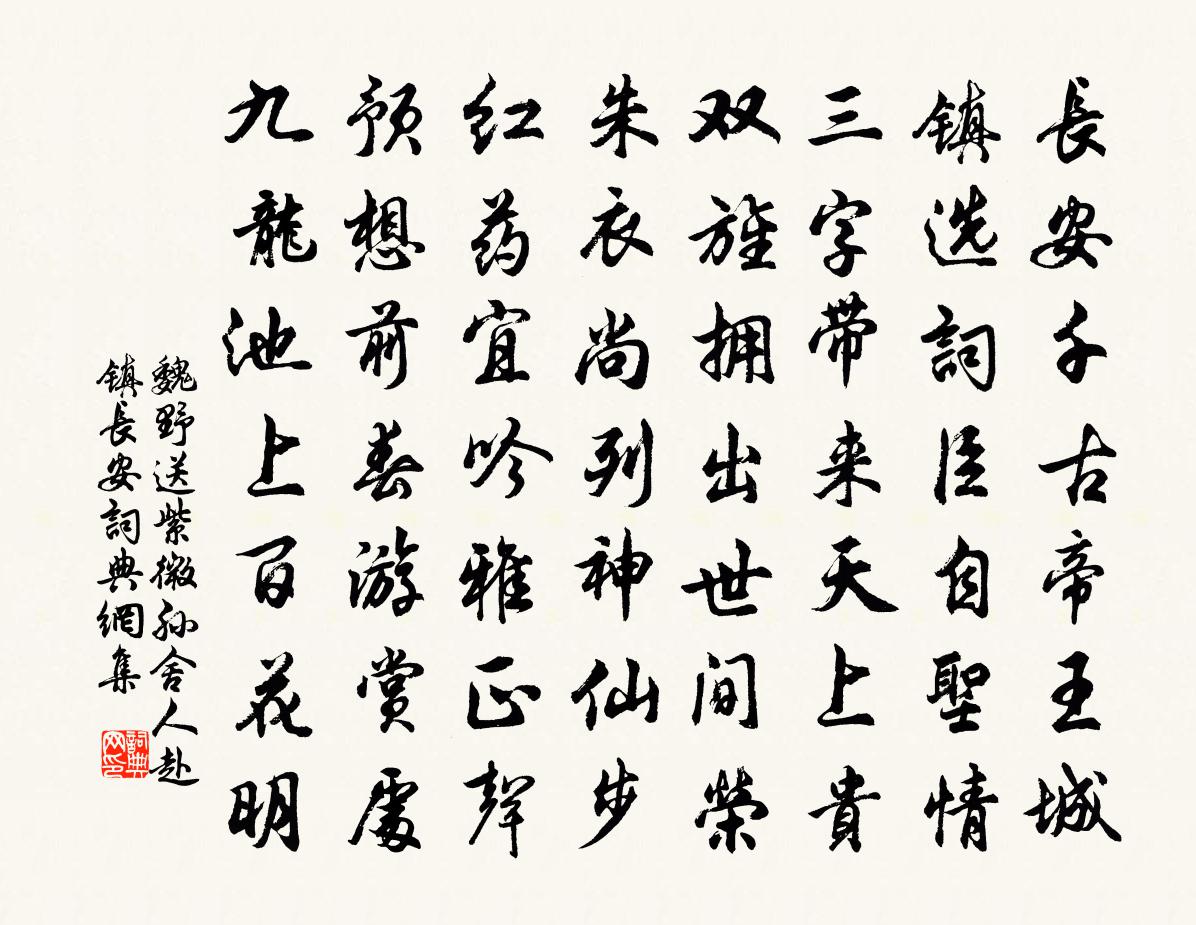 長安千古帝王城
鎮选詞臣自聖情
三字带来天上貴
双旌拥出世间榮
朱衣尚列神仙步
红药宜吟雅正聲
预想前春游赏處
九龍池上百花明
魏野送紫微孙舍人赴
鎮長安詞典網集
詞典
网印